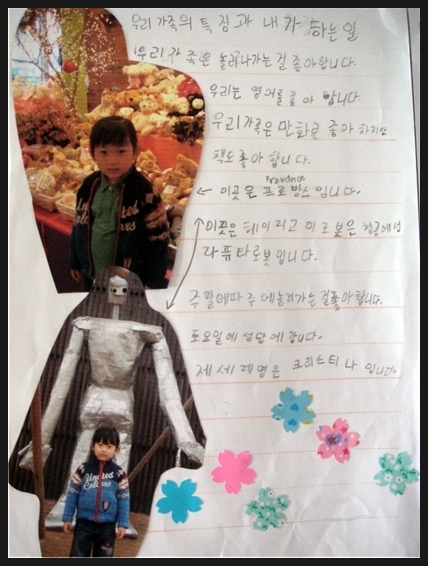 우리 가족의 특징과 내가 하는일
우리 가족은 놀러나가는걸 좋아합니다.
우리는 영어를 좋아 합니다.
우리가족은 만화를 좋아 하지만
책도 좋아 합니다.
Provance
← 이곳은 프로방스 입니다.
이곳은 헤이리고 이 로봇은 천공에성
라퓨타로봇입니다.
주말에파주에놀러가는걸좋아합니다.
토요일에 성당에 갑니다.
제 세례명은 크리스티나 입니다.
United
Colors
United
Colors